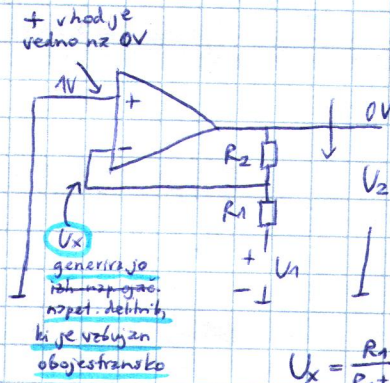 + vhod je
vedno na 0V
1V
+
-
0V
R2
U2
R1
+
U1
-
Ux
generirajo
izh. napajač.
napet. delilnik,
ki je vzbujan
obojestransko
Ux = R1